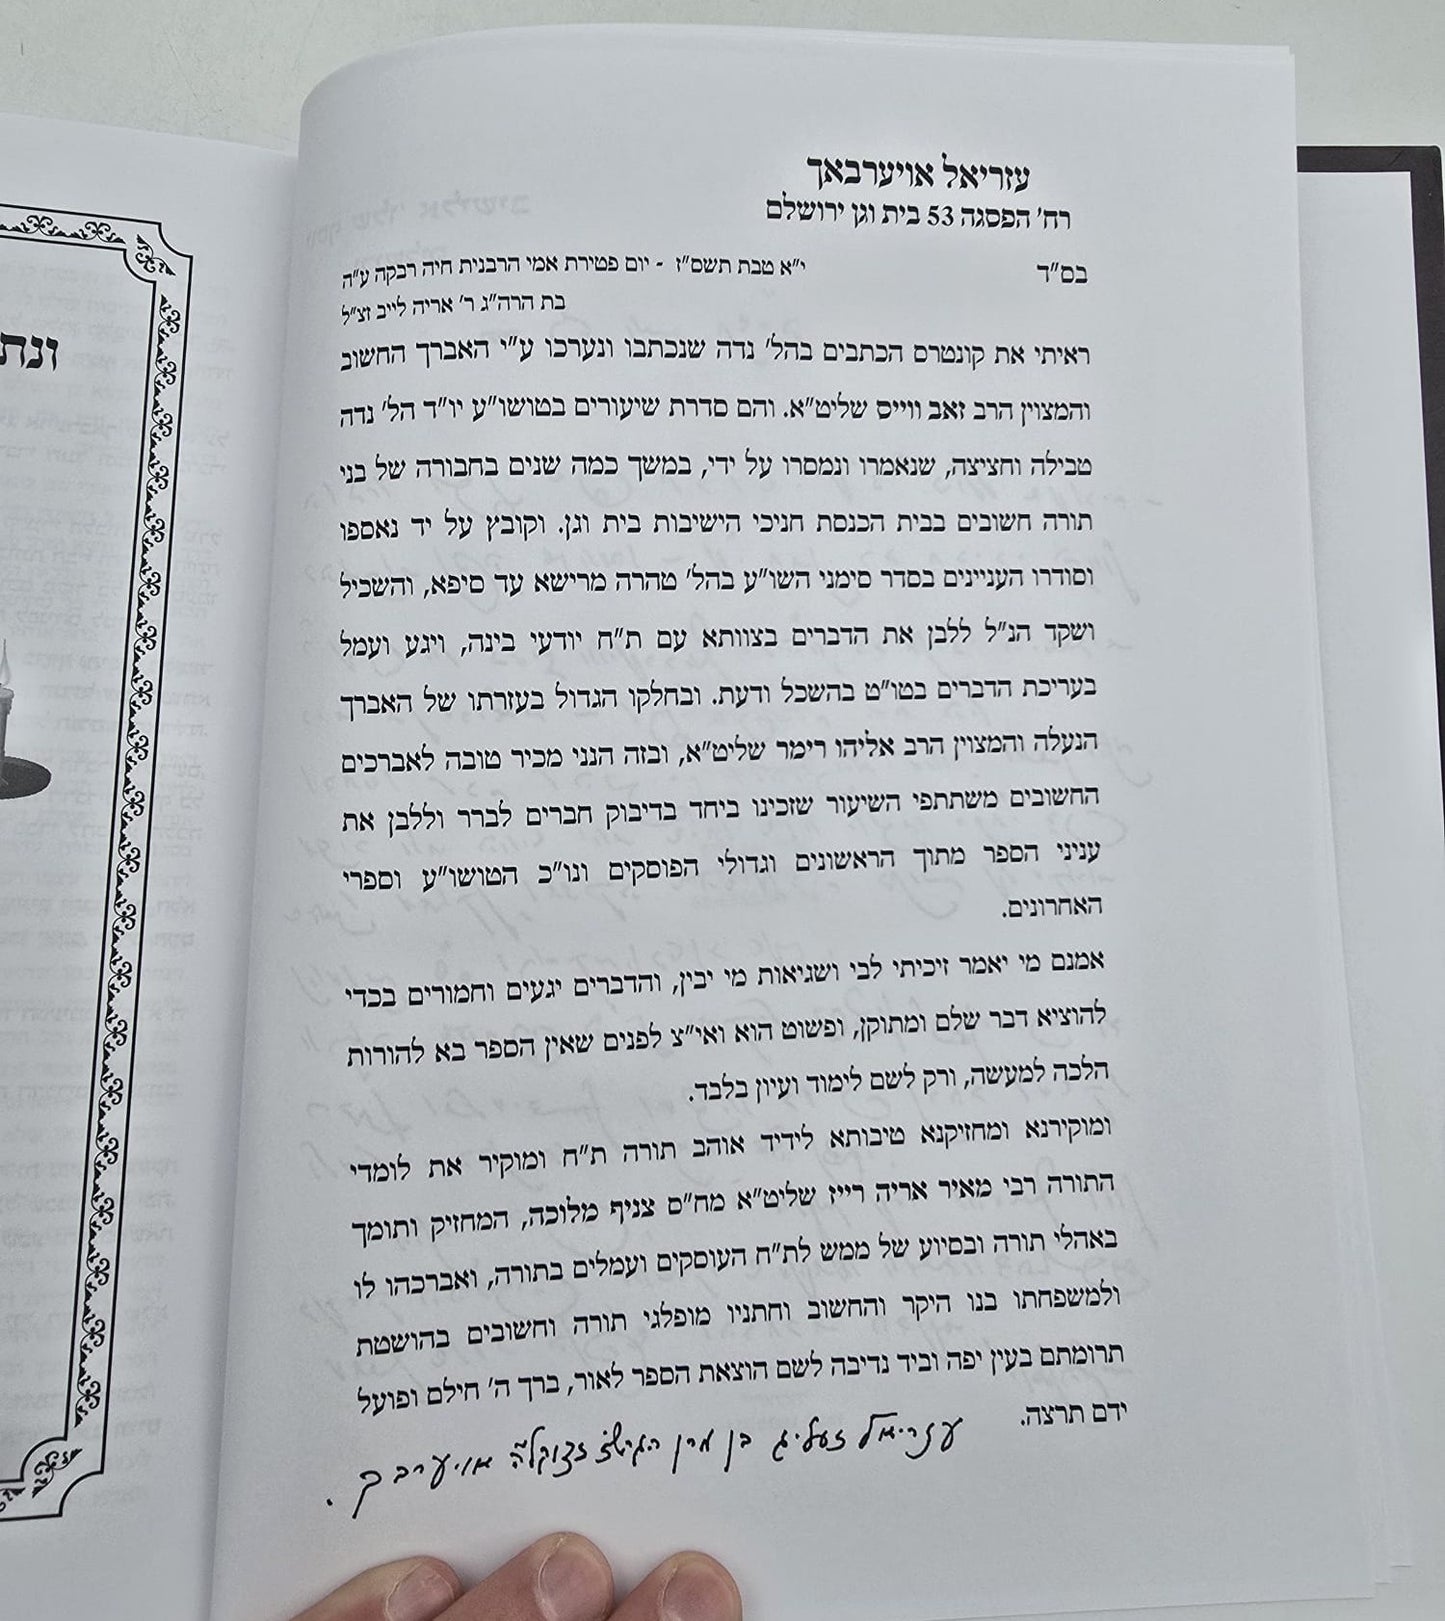 ונת
עזריאל אויערבאך
רח' הפסגה 53 בית וגן ירושלם
בס"ד
י"א טבת תשס"ז - יום פטירת אמי הרבנית חיה רבקה ע"ה
בת הרה"ג ר' אריה לייב זצ"ל
ראיתי את קונטרס הכתבים בהל' נדה שנכתבו ונערכו ע"י האברך החשוב
והמצוין הרב זאב ווייס שליט"א. והם סדרת שיעורים בטושו"ע יו"ד הל' נדה
טבילה וחציצה, שנאמרו ונמסרו על ידי, במשך כמה שנים בחבורה של בני
תורה חשובים בבית הכנסת חניכי הישיבות בית וגן. וקובץ על יד נאספו
וסודרו העניינים בסדר סימני השו"ע בהל' טהרה מרישא עד סיפא, והשכיל
ושקד הנ"ל ללבן את הדברים בצוותא עם ת"ח יודעי בינה, ויגע ועמל
בעריכת הדברים בטו"ט בהשכל ודעת. ובחלקו הגדול בעזרתו של האברך
הנעלה והמצוין הרב אליהו רימר שליט"א, ובזה הנני מכיר טובה לאברכים
החשובים משתתפי השיעור שזכינו ביחד בדיבוק חברים לברר וללבן את
עניני הספר מתוך הראשונים וגדולי הפוסקים ונו"כ הטושו"ע וספרי
האחרונים.
אמנם מי יאמר זיכיתי לבי ושגיאות מי יבין, והדברים יגעים וחמורים בכדי
להוציא דבר שלם ומתוקן, ופשוט הוא ואי"צ לפנים שאין הספר בא להורות
הלכה למעשה, ורק לשם לימוד ועיון בלבד.
ומוקירנא ומחזיקנא טיבותא לידיד אוהב תורה ת"ח ומוקיר את לומדי
התורה רבי מאיר אריה רייז שליט"א מח"ס צניף מלוכה, המחזיק ותומך
באהלי תורה ובסיוע של ממש לת"ח העוסקים ועמלים בתורה, ואברכהו לו
ולמשפחתו בנו היקר והחשוב וחתניו מופלגי תורה וחשובים בהושטת
תרומתם בעין יפה וביד נדיבה לשם הוצאת הספר לאור, ברך ה' חילם ופועל
ידם תרצה.
עזריאל זעליג בן מרן הגרש"ז זצוקל"ה אויערבך.